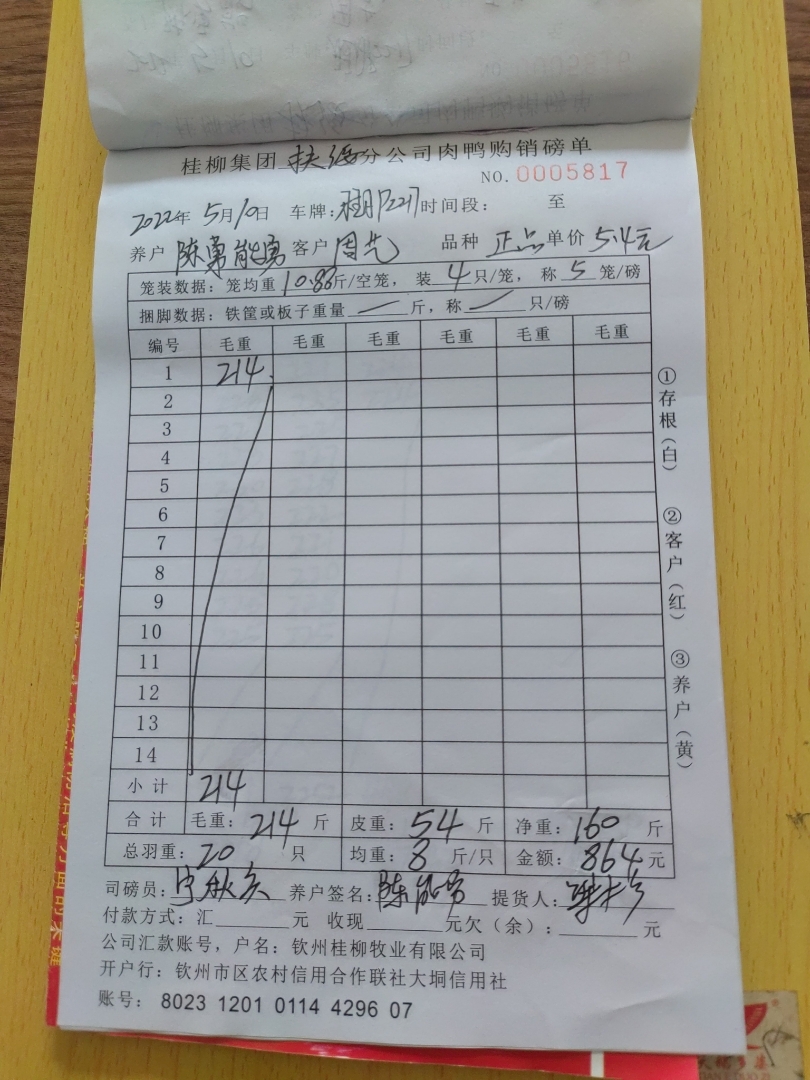 桂柳集团扶绥分公司肉鸭购销磅单
NO.0005817
2022年5月10日 车牌: 时间段: 至
养户 陈勇 能勇 客户 周先 品种 正品 单价 5.4元
笼装数据:笼均重10.83斤/空笼,装4只/笼,称5笼/磅
捆脚数据:铁筐或板子重量 — 斤,称 — 只/磅
编号 毛重 毛重 毛重 毛重 毛重 毛重
1 214
2
3
4
5
6
7
8
9
10
11
12
13
14
小计 214
合计 毛重:214斤 皮重:54斤 净重:160斤
总羽重:20只 均重:8斤/只 金额:864元
①存根(白)
②客户(红)
③养户(黄)
司磅员: 养户签名:陈能勇 提货人:
付款方式:汇 元 收现 元欠(余): 元
公司汇款账号,户名:钦州桂柳牧业有限公司
开户行:钦州市区农村信用合作联社大垌信用社
账号:8023 1201 0114 4296 07